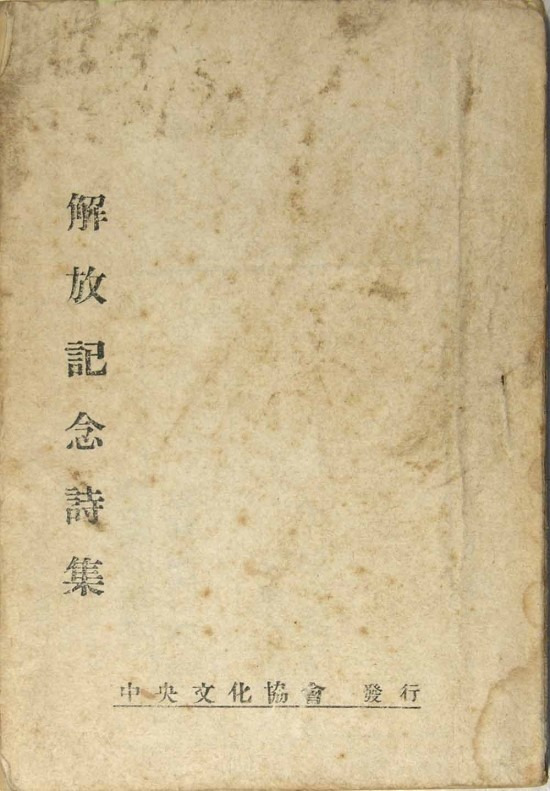 解放記念詩集
中央文化協會 發行